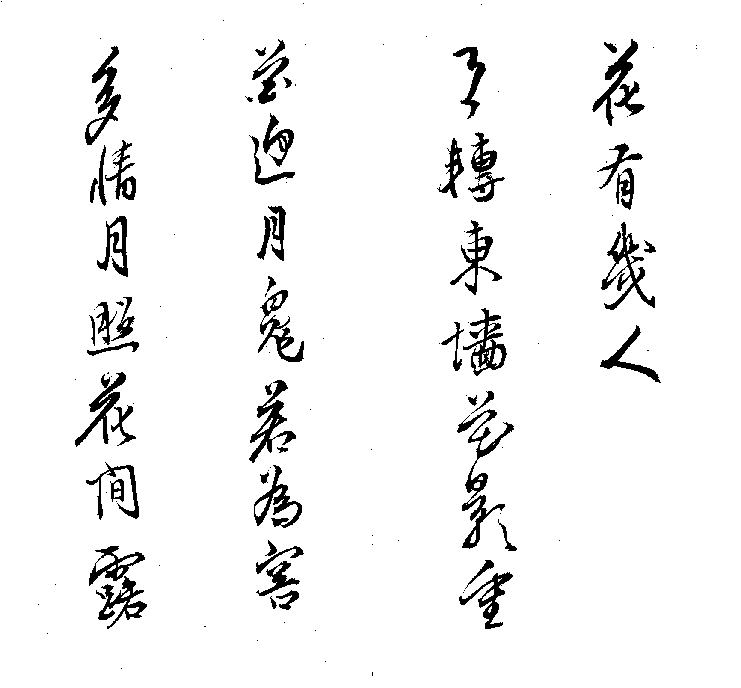 花有幾人
月轉東墻花影重
花迎月魄若為容
多情月照花間露